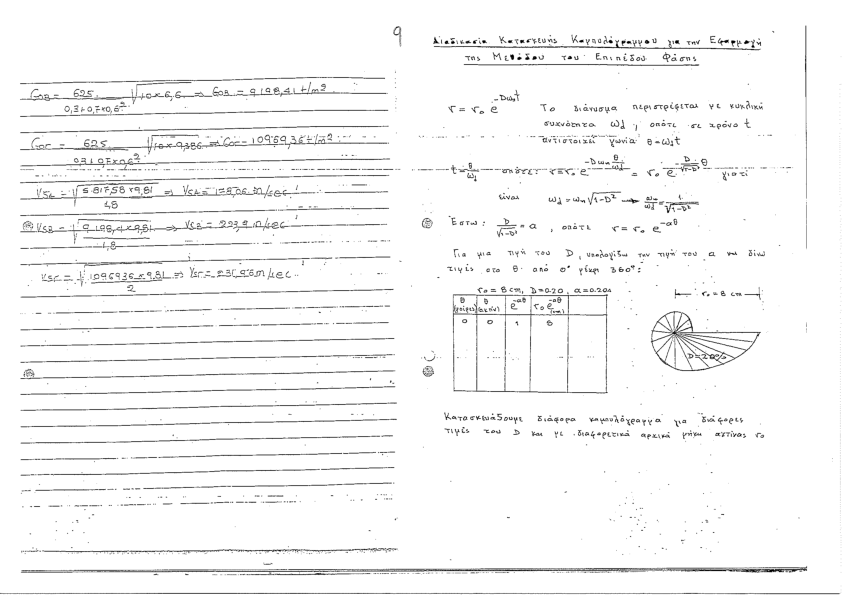 9
G₀B = 625 / (0,3+0,7×0,6²) √(10×6,6) ⇒ G₀B = 9198,41 t/m²
G₀Γ = 625 √(10×9386) ⇒ G₀Γ = 10969,36 t/m²
√(5817,58×9,81 / 1,8) ⇒
V_SB = √(9198,4×9,81 / 1,8) ⇒ V_SB = 223,9 m/sec
V_SΓ = √(10969,36×9,81 / 2) ⇒
Διαδικασία Κατασκευής Καμπυλόγραμμου για την Εφαρμογή
της Μεθόδου του Επιπέδου Φάσης
r = r₀ e^(-Dωₙt) Το διάνυσμα περιστρέφεται με κυκλική
συχνότητα ω_d, οπότε σε χρόνο t
αντιστοιχεί γωνία θ = ω_d t
t = θ/ω_d οπότε: r = r₀ e^(-Dωₙ θ/ω_d) = r₀ e^(-D/√(1-D²) θ) γιατί
είναι ω_d = ωₙ √(1-D²) → ωₙ/ω_d = 1/√(1-D²)
Έστω: D/√(1-D²) = a, οπότε r = r₀ e^(-aθ)
Για μια τιμή του D, υπολογίζω την τιμή του a και δίνω
τιμές στο θ από 0° μέχρι 360°:
r₀ = 8 cm, D=0.20, a=0.204
r₀ = 8 cm
θ (μοίρες) θ (ακτίν) e^(-aθ) r₀e^(-aθ) (cm)
0 0 1 8
D=20%
Κατασκευάζουμε διάφορα καμπυλόγραμμα για διάφορες
τιμές του D και με διαφορετικά αρχικά μήκη ακτίνας r₀